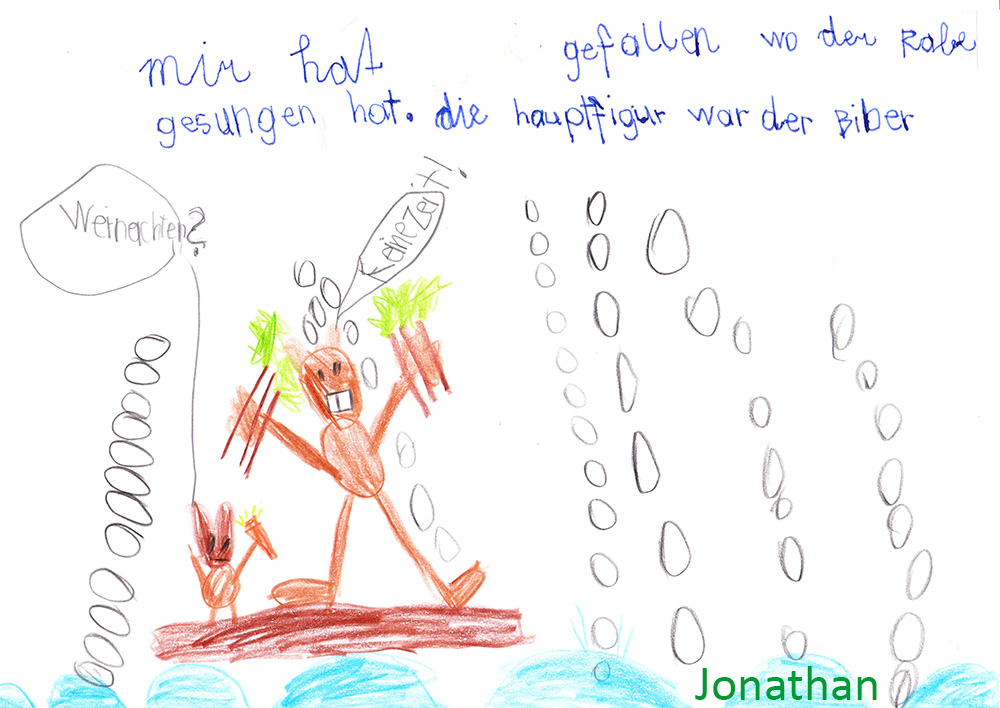 mir hat gefallen wo der Rabe
gesungen hat. die hauptfigur war der Biber
Weinachten?
Keine Zeit!
Jonathan